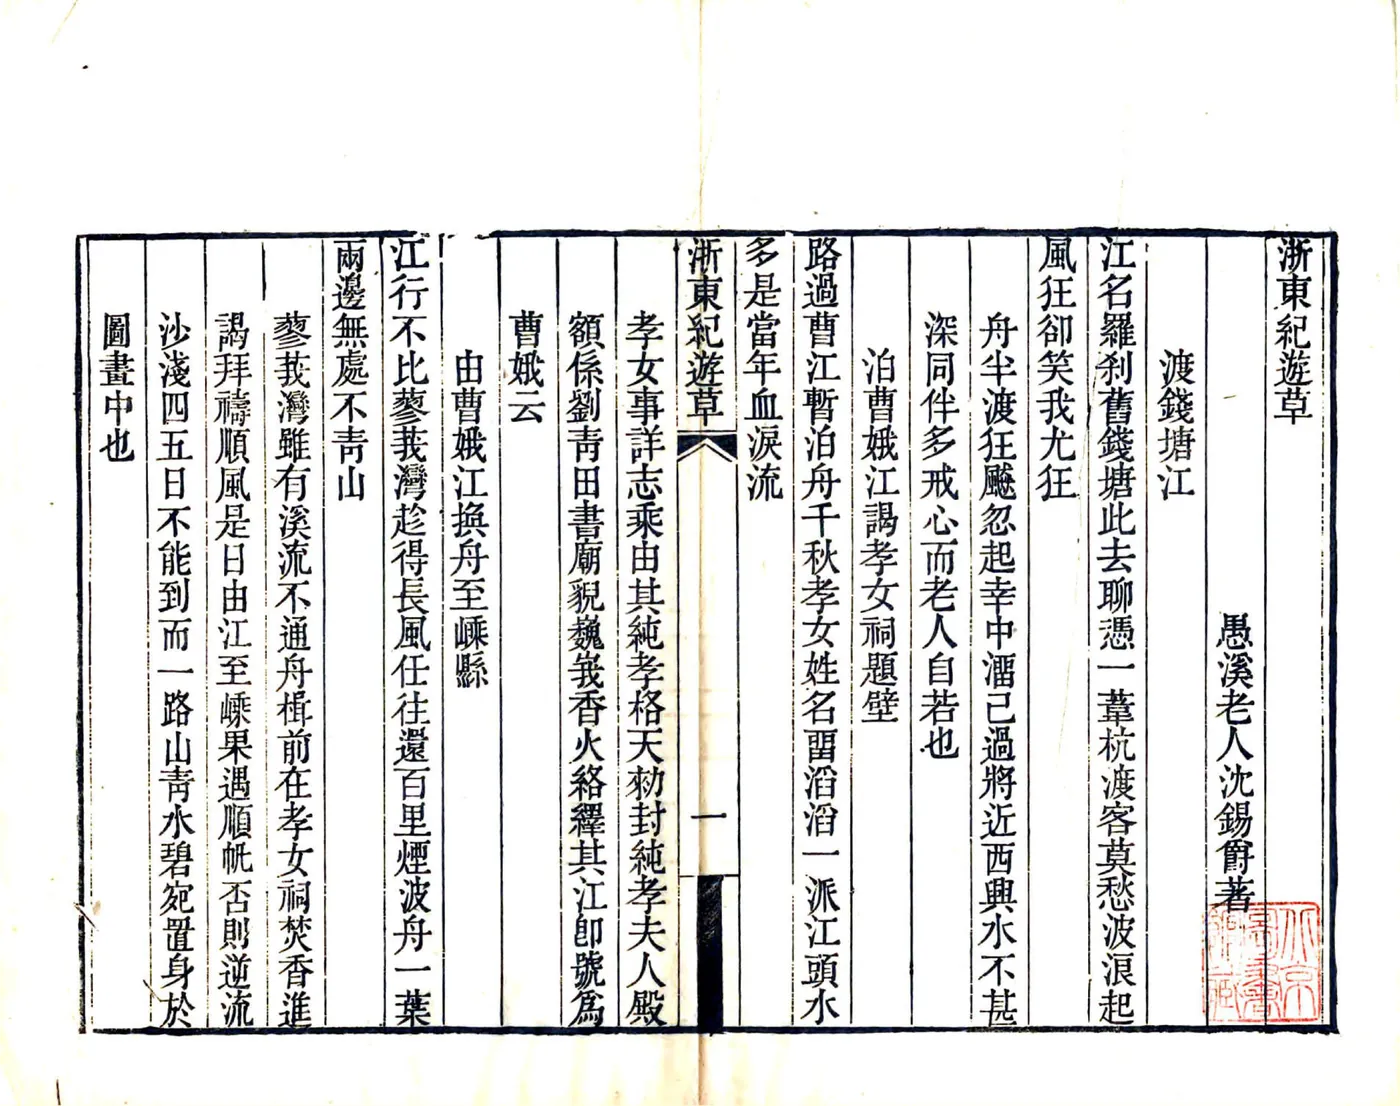 浙東紀遊草
愚溪老人沈錫爵著
渡錢塘江
江名羅刹舊錢塘此去聊憑一葦杭渡客莫愁波浪起
風狂卻笑我尤狂
舟半渡狂飈忽起幸中溜已過將近西興水不甚
深同伴多戒心而老人自若也
泊曹娥江謁孝女祠題壁
路過曹江暫泊舟千秋孝女姓名畱滔滔一派江頭水
多是當年血淚流
浙東紀遊草
一
孝女事詳志乘由其純孝格天勑封純孝夫人殿
額係劉靑田書廟貌巍峩香火絡繹其江卽號爲
曹娥云
由曹娥江換舟至嵊縣
江行不比蓼莪灣趁得長風任往還百里煙波舟一葉
兩邊無處不靑山
蓼莪灣雖有溪流不通舟楫前在孝女祠焚香進
謁拜禱順風是日由江至嵊果遇順帆否則逆流
沙淺四五日不能到而一路山靑水碧宛置身於
圖畫中也